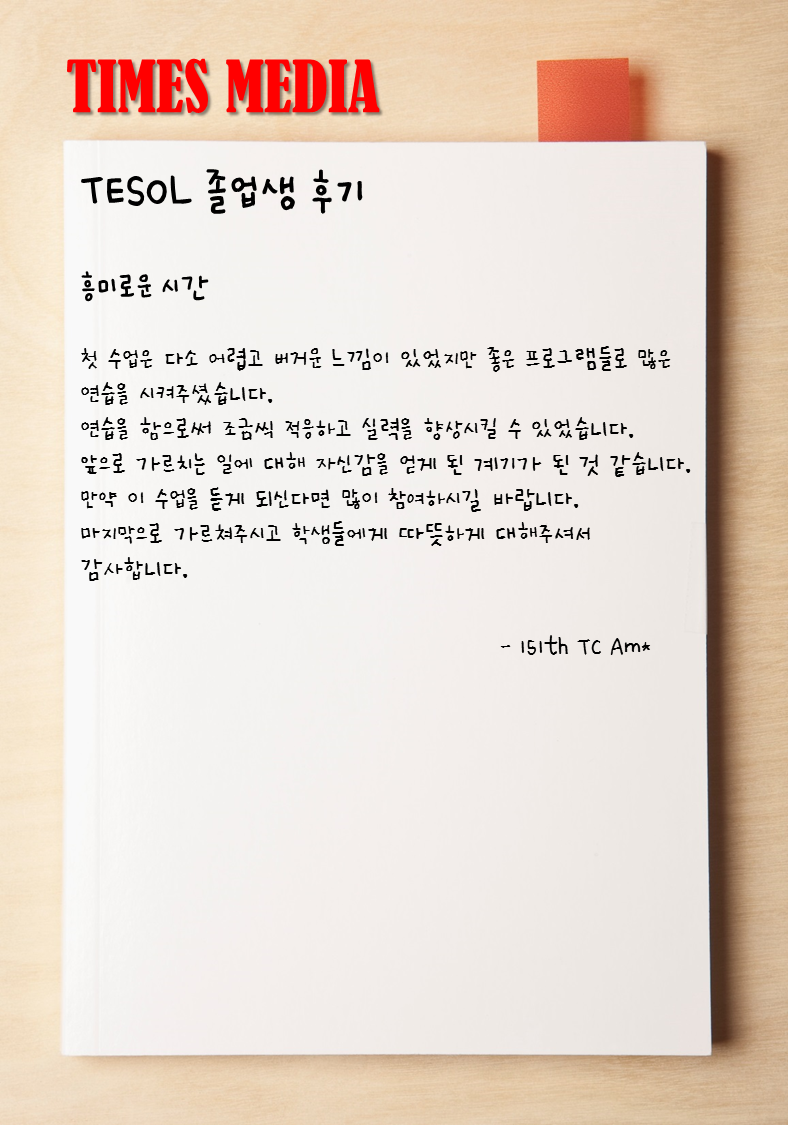 TIMES MEDIA
TESOL 졸업생 후기
흥미로운 시간
첫 수업은 다소 어렵고 버거운 느낌이 있었지만 좋은 프로그램들로 많은
연습을 시켜주셨습니다.
연습을 함으로써 조금씩 적응하고 실력을 향상시킬 수 있었습니다.
앞으로 가르치는 일에 대해 자신감을 얻게 된 계기가 된 것 같습니다.
만약 이 수업을 듣게 되신다면 많이 참여하시길 바랍니다.
마지막으로 가르쳐주시고 학생들에게 따뜻하게 대해주셔서
감사합니다.
- 151th TC Am*